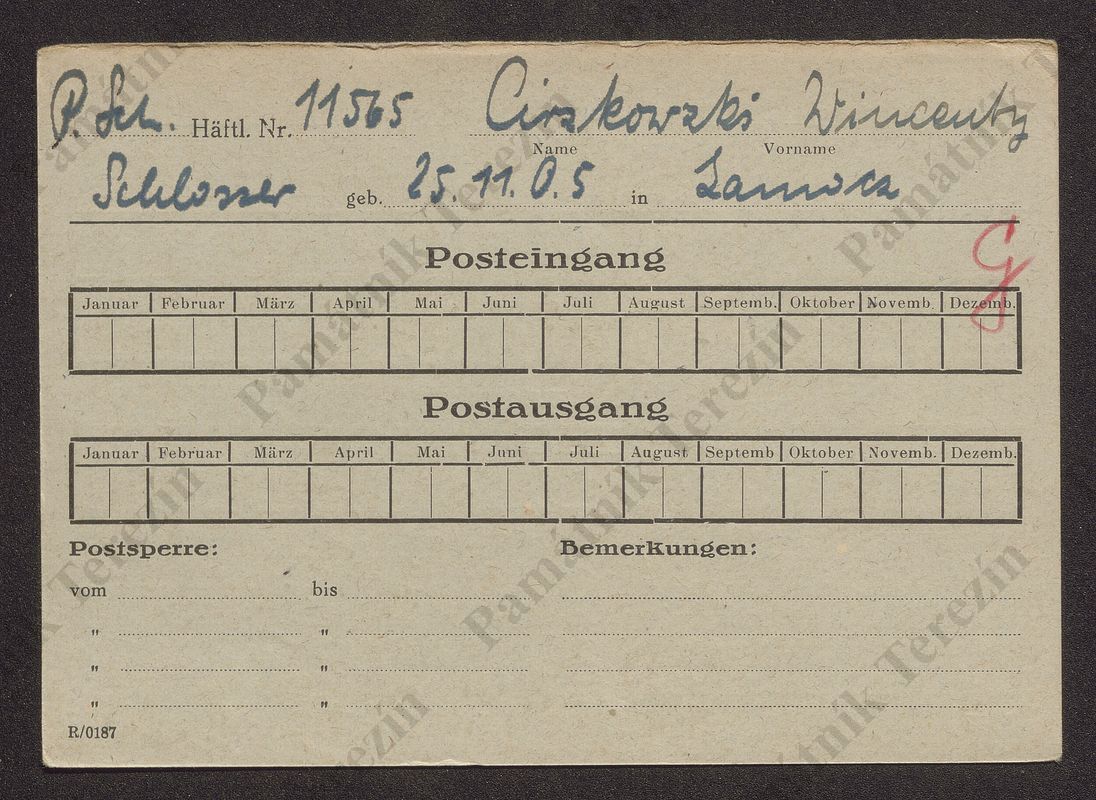 P. Sch. Häftl. Nr. 11565 Ciszkowski Wincenty
Name Vorname
Schlosser geb. 25.11.05 in Zamocz
G
Posteingang
Januar Februar März April Mai Juni Juli August Septemb. Oktober Novemb. Dezemb.
Postausgang
Januar Februar März April Mai Juni Juli August Septemb Oktober Novemb. Dezemb.
Postsperre: Bemerkungen:
vom bis
" "
" "
" "
R/0187
Památník Terezín